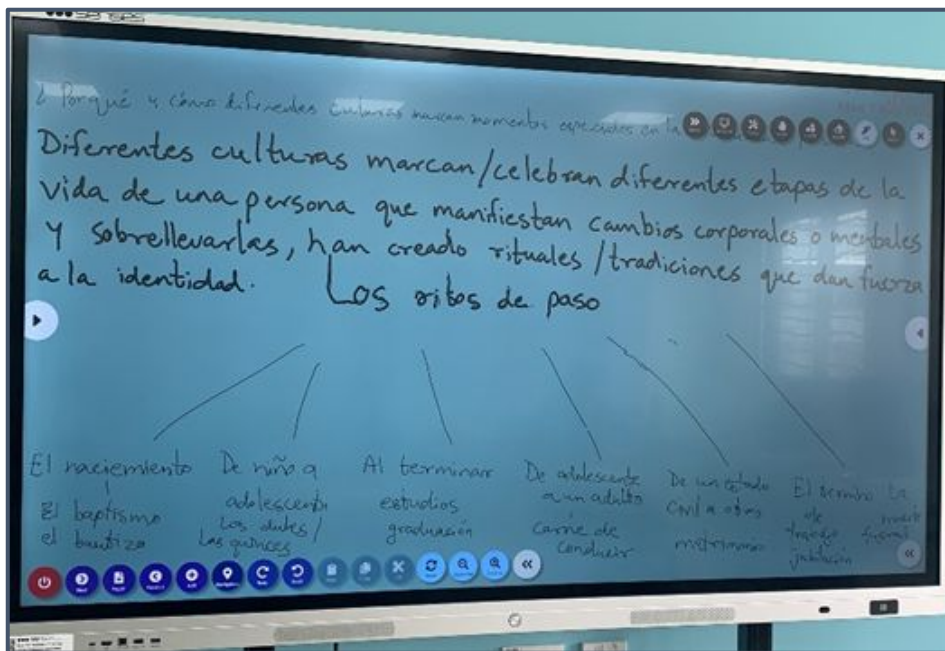 ¿Por qué y cómo diferentes culturas marcan momentos especiales en la
Diferentes culturas marcan/celebran diferentes etapas de la
vida de una persona que manifiestan cambios corporales o mentales
y sobrellevarlas, han creado rituales/tradiciones que dan fuerza
a la identidad.
Los ritos de paso
El naciemiento
El baptismo
el bautizo
De niño a
adolescente
Los dulces/
Las quinces
Al terminar
estudios
graduación
De adolescente
a un adulto
carné de
conducir
De un estado
civil a otro
matrimonio
El termino
de
trabajo
jubilación
La
muerte
funeral